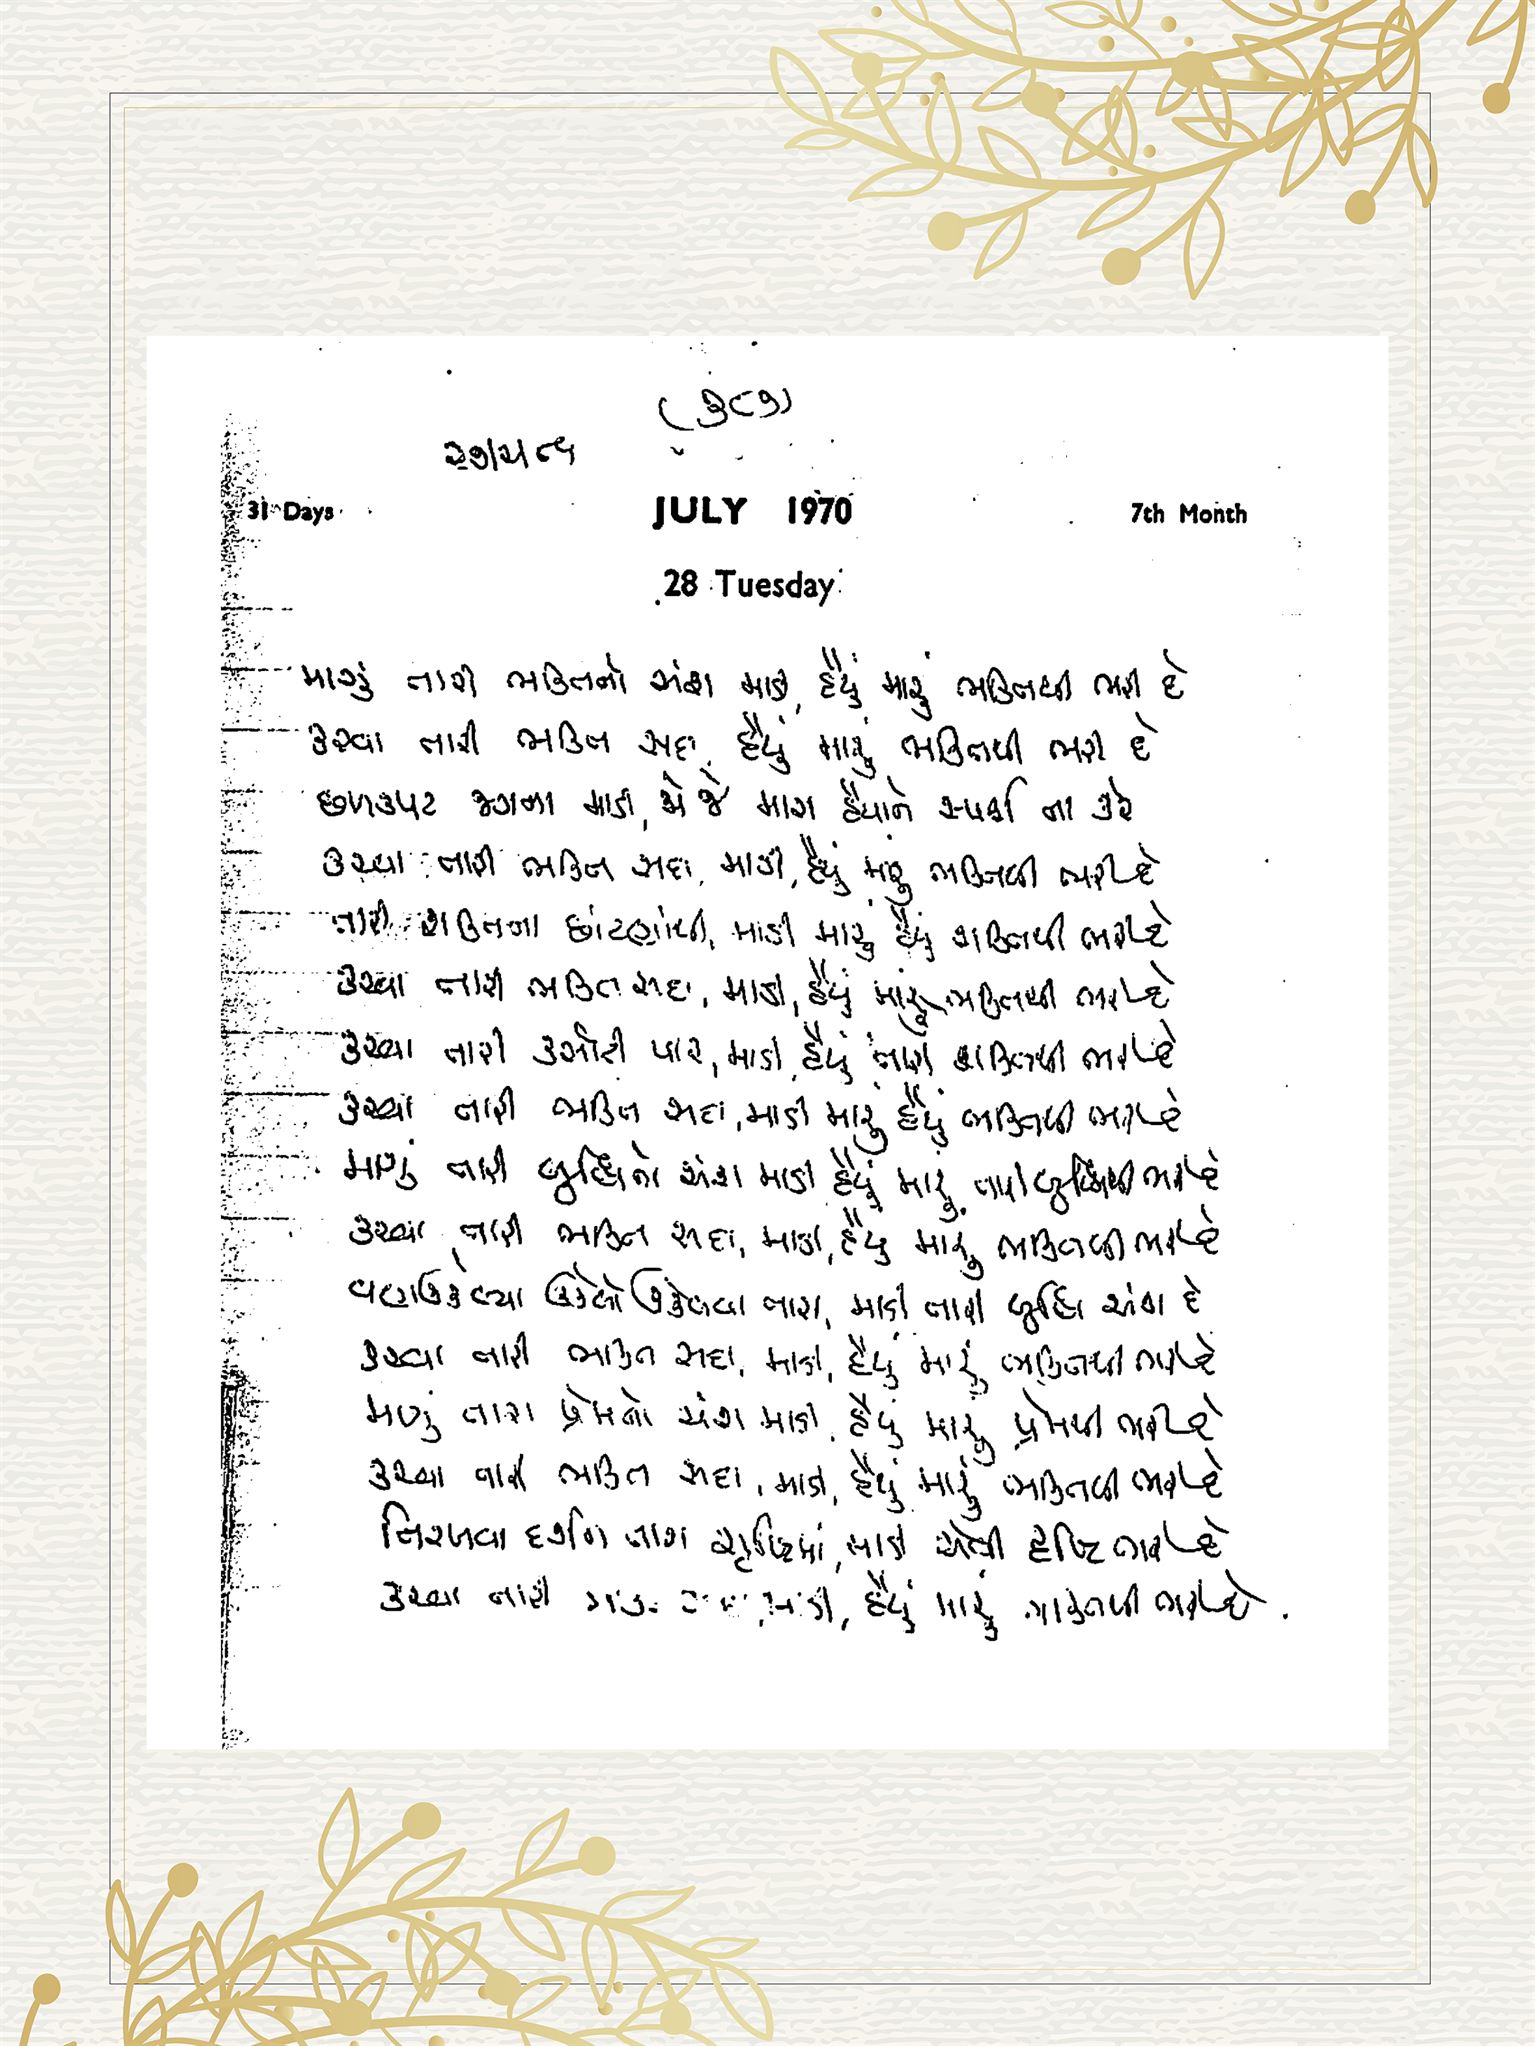 31 Days JULY 1970 7th Month
28 Tuesday
માગું તારી ભક્તિનો અંશ માડી, હૈયું મારું ભક્તિથી ભરી દે
કરવા તારી ભક્તિ સદા, હૈયું મારું ભક્તિથી ભરી દે
છળકપટ જગના માડી, એ જે મારા હૈયાને સ્પર્શ ના કરે
કરવા તારી ભક્તિ સદા, માડી, હૈયું મારું ભક્તિથી ભરી દે
તારી શક્તિના છાંટણાંથી, માડી મારું હૈયું શક્તિથી ભરી દે
કરવા તારી ભક્તિ સદા, માડી, હૈયું મારું ભક્તિથી ભરી દે
કરવા તારી કસોટી પાર, માડી, હૈયું તારી શક્તિથી ભરી દે
કરવા તારી ભક્તિ સદા, માડી મારું હૈયું ભક્તિથી ભરી દે
માગું તારી બુદ્ધિનો અંશ માડી હૈયું મારું બુદ્ધિથી ભરી દે
કરવા તારી ભક્તિ સદા, માડી, હૈયું મારું ભક્તિથી ભરી દે
વણઉકેલ્યા ઉકેલો ઉકેલવા તારા, માડી તારી બુદ્ધિ અંશ દે
કરવા તારી ભક્તિ સદા, માડી, હૈયું મારું ભક્તિથી ભરી દે
તારા પ્રેમનો અંશ માડી, હૈયું મારું પ્રેમથી ભરી દે
કરવા તારી ભક્તિ સદા, માડી, હૈયું મારું ભક્તિથી ભરી દે
નિરખવા દર્શન તારા સૃષ્ટિમાં, માડી એવી દૃષ્ટિ ભરી દે
કરવા તારી માડી, હૈયું મારું ભક્તિથી ભરી દે.